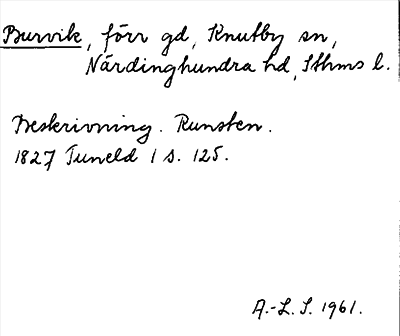 Burvik, förr gd, Knutby sn,
Närdinghundra hd, Sthms l.
Beskrivning. Runsten.
1827 Tuneld 1 s. 125.
A.-L. S. 1961.